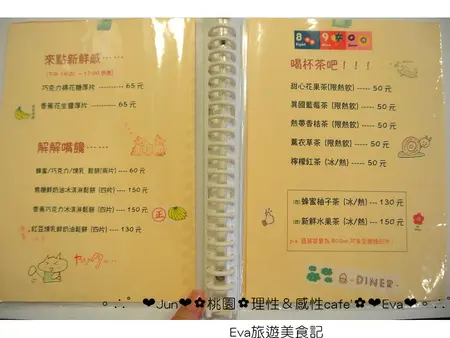 來點新鮮感……
巧克力棉花糖厚片 ------ 65 元
香蕉花生醬厚片 -------- 65 元
解解嘴饞……
蜂蜜/巧克力/煉乳 鬆餅(兩片) --- 60 元
焦糖鮮奶油冰淇淋鬆餅 (四片) ---- 150 元
香蕉巧克力冰淇淋鬆餅 (四片) ---- 150 元
紅豆煉乳鮮奶油鬆餅 (四片) --- 130 元
正
8
Eight
9
Nine
喝杯茶吧！！！
甜心花果茶(限熱飲) ----- 50 元
異國藍莓茶 (限熱飲) ----- 50 元
熱帶香桔茶 (限熱飲) ----- 50 元
薰衣草茶 (限熱飲) ------ 50 元
檸檬紅茶 (冰/熱) ------ 50 元
蜂蜜柚子茶 (冰/熱) --- 130 元
新鮮水果茶 (冰/熱) --- 150 元
Q-DINER
❤Jun❤✿桃園✿理性＆感性cafe'✿❤Eva❤
Eva旅遊美食記